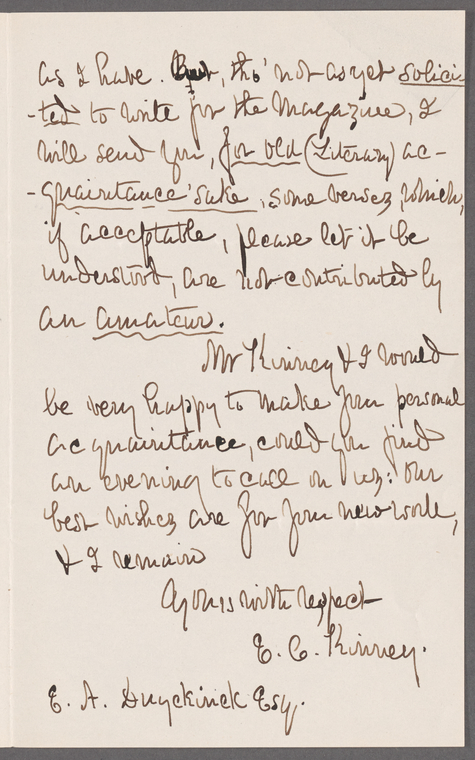 as I have. But, tho' not as yet solici-
-ted to write for the Magazine, I
will send you, for old (Literary) ac-
-quaintance' sake, some verses, which,
if acceptable, please let it be
understood, are not contributed by
an amateur.
Mr Kinney & I would
be very happy to make your personal
acquaintance, could you find
an evening to call on us: our
best wishes are for your new work,
& I remain
Yours with respect
E. C. Kinney.
E. A. Duyckinck Esq.